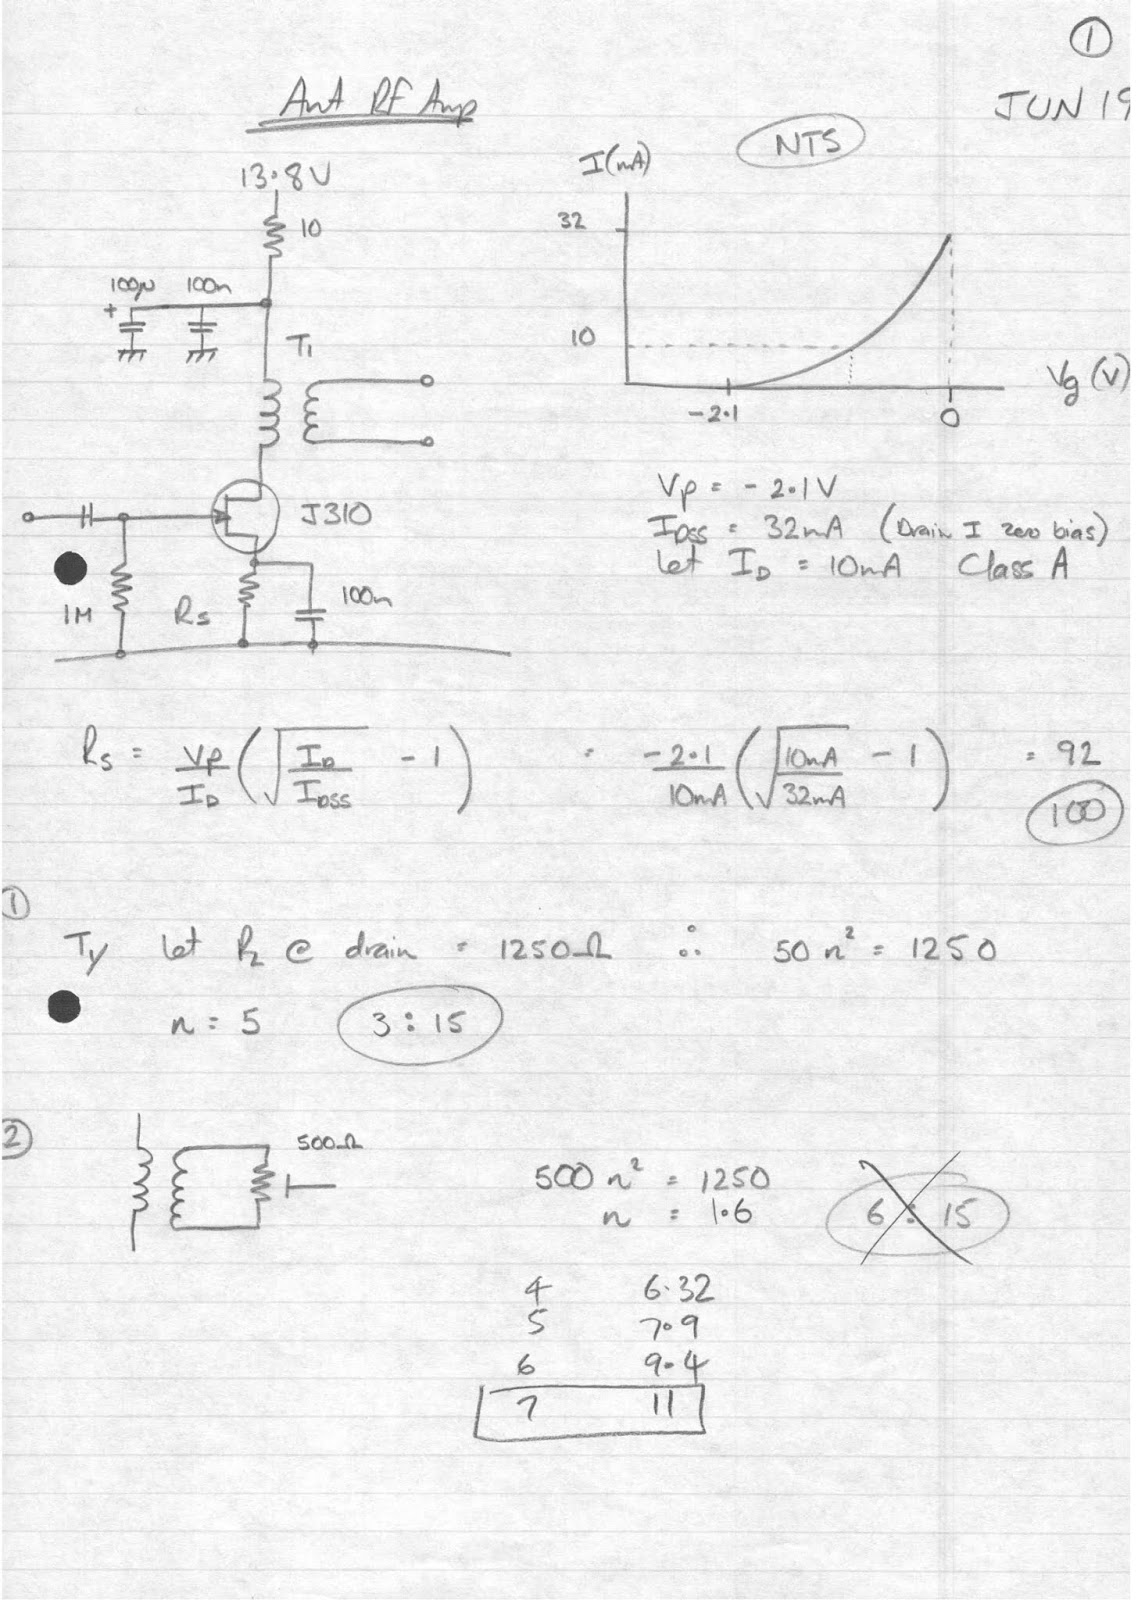 ①
JUN 19
Ant RF Amp
NTS
13.8V
10
100μ 100n
+
T1
J310
1M
Rs
100n
I(mA)
32
10
-2.1
0
Vg (V)
Vp = -2.1V
IDSS = 32mA (Drain I zero bias)
Let ID = 10mA Class A
Rs = Vp/ID (√(ID/IDSS) - 1) = -2.1/10mA (√(10mA/32mA) - 1) = 92
100
①
Ty let RL @ drain = 1250Ω ∴ 50 n² = 1250
n = 5 3:15
②
500Ω
500 n² = 1250
n = 1.6
6 : 15
4 6.32
5 7.9
6 9.4
7 11